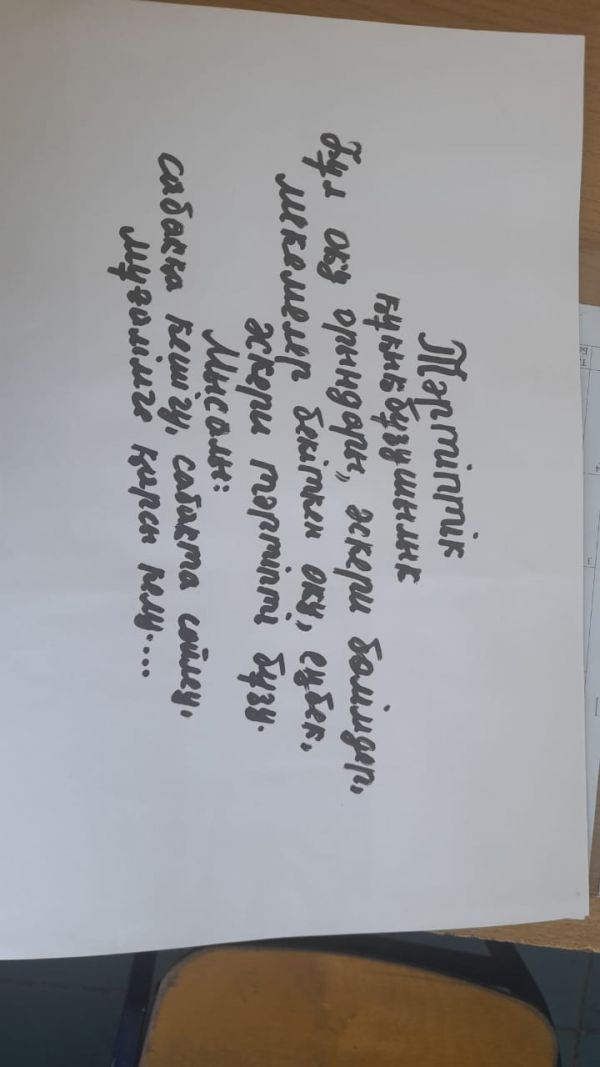 Тәртіптік
құқықбұзушылық
Бұл оқу орындары, әскери бөлімдер,
мекемелер бекіткен оқу, еңбек,
әскери тәртіпті бұзу.
Мысалы:
сабаққа кешігу, сабақта сөйлеу,
мұғалімге қарсы келу....